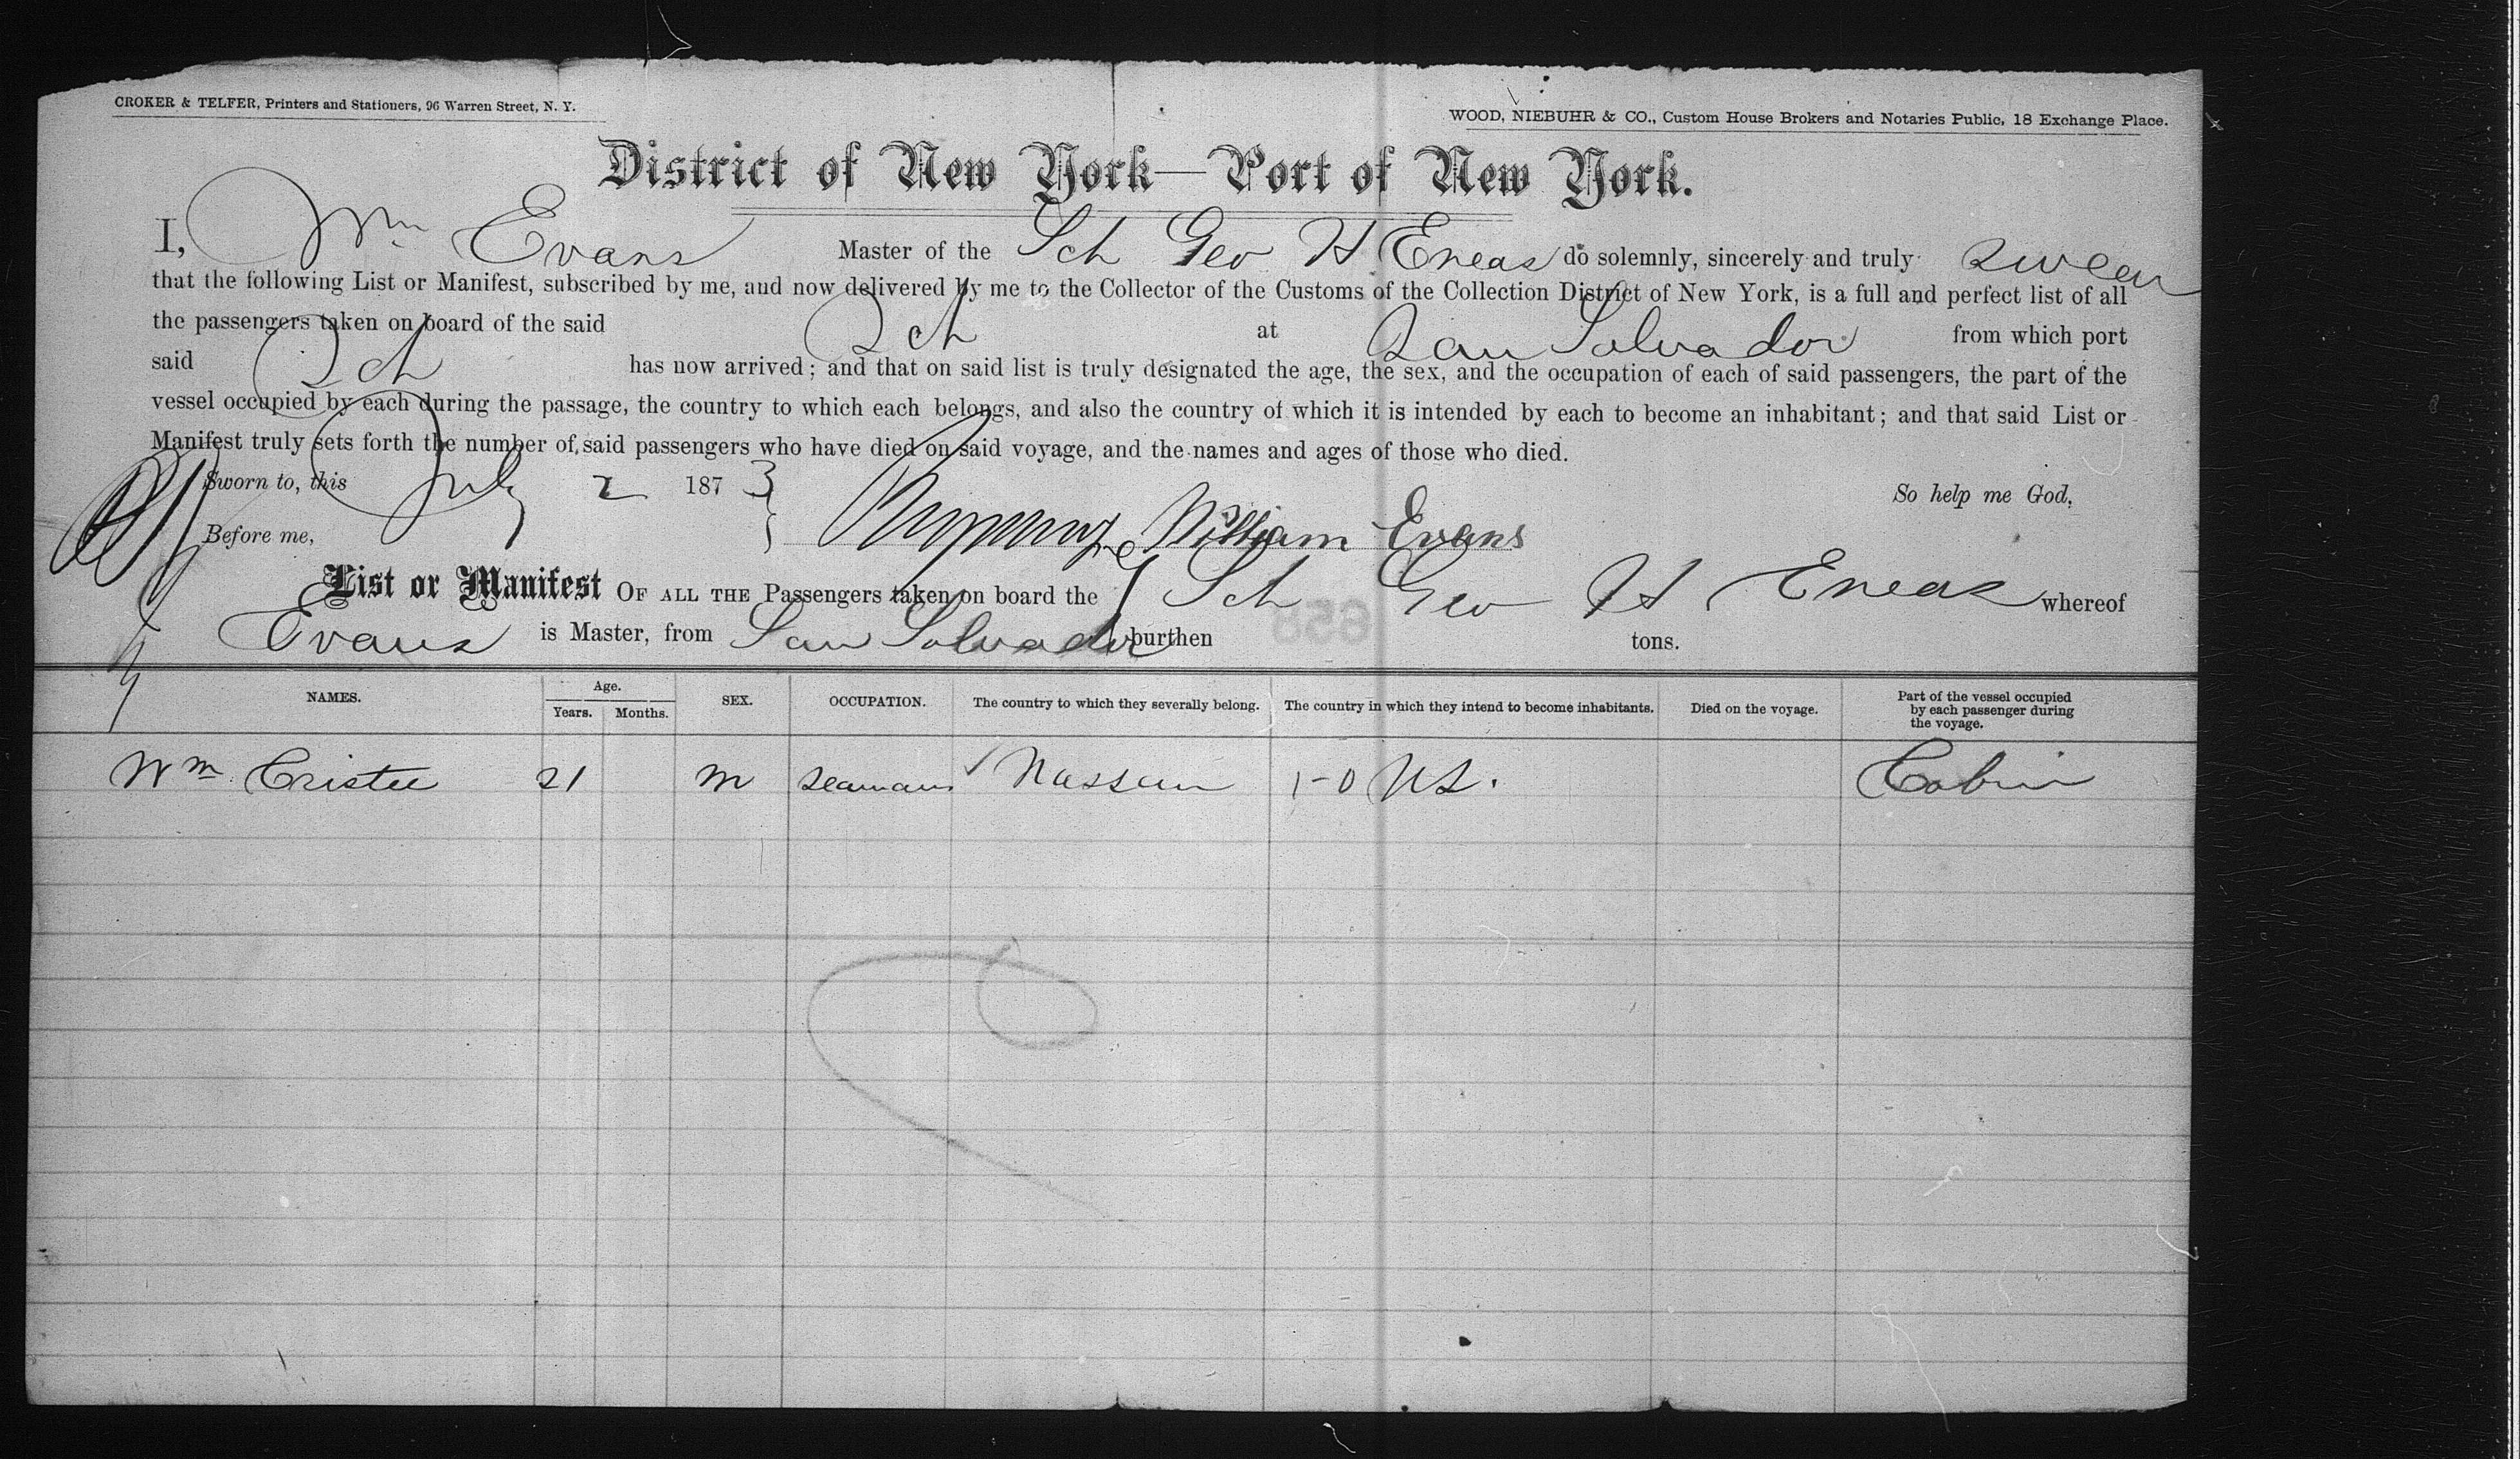 CROKER & TELFER, Printers and Stationers, 96 Warren Street, N. Y.
WOOD, NIEBUHR & CO., Custom House Brokers and Notaries Public, 18 Exchange Place.
District of New York—Port of New York.
I, Wm Evans Master of the Sch Geo H Eneas do solemnly, sincerely and truly swear
that the following List or Manifest, subscribed by me, and now delivered by me to the Collector of the Customs of the Collection District of New York, is a full and perfect list of all
the passengers taken on board of the said Sch at San Salvador from which port
said Sch has now arrived; and that on said list is truly designated the age, the sex, and the occupation of each of said passengers, the part of the
vessel occupied by each during the passage, the country to which each belongs, and also the country of which it is intended by each to become an inhabitant; and that said List or
Manifest truly sets forth the number of said passengers who have died on said voyage, and the names and ages of those who died.
Sworn to, this July 2 1873 So help me God,
Before me, William Evans
List or Manifest OF ALL THE Passengers taken on board the Sch Geo H Eneas whereof
Evans is Master, from San Salvador burthen tons.
NAMES. Age. Years. Months. SEX. OCCUPATION. The country to which they severally belong. The country in which they intend to become inhabitants. Died on the voyage. Part of the vessel occupied by each passenger during the voyage.
Wm Cristee 21 m seaman Nassau 1-0 US. Cabin